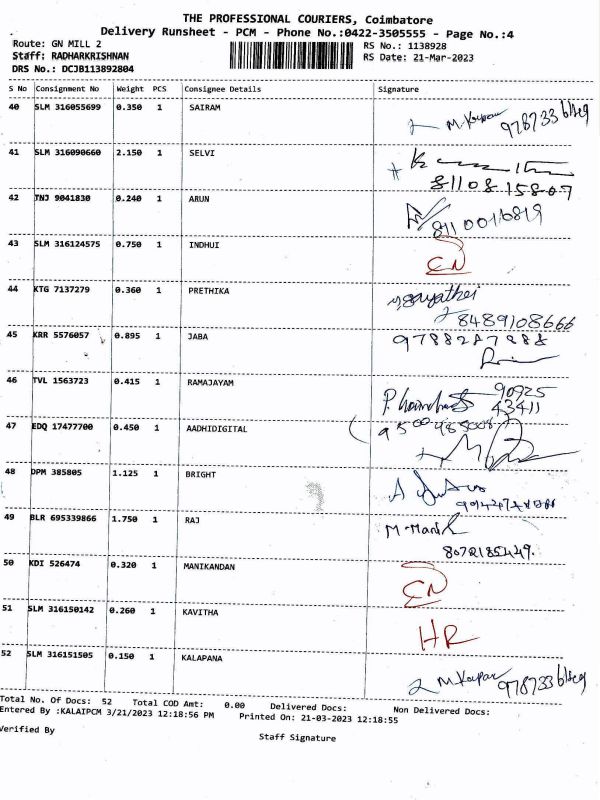 THE PROFESSIONAL COURIERS, Coimbatore
Delivery Runsheet - PCM - Phone No.:0422-3505555 - Page No.:4
Route: GN MILL 2 RS No.: 1138928
Staff: RADHARKRISHNAN RS Date: 21-Mar-2023
DRS No.: DCJB113892804
S No Consignment No Weight PCS Consignee Details Signature
40 SLM 316055699 0.350 1 SAIRAM
41 SLM 316090660 2.150 1 SELVI
8110815807
42 TNJ 9041830 0.240 1 ARUN
8110016819
43 SLM 316124575 0.750 1 INDHUI
EN
44 KTG 7137279 0.360 1 PRETHIKA
8489108666
45 KRR 5576057 0.895 1 JABA
9788287888
46 TVL 1563723 0.415 1 RAMAJAYAM
90925
43411
47 EDQ 17477700 0.450 1 AADHIDIGITAL
48 DPM 385805 1.125 1 BRIGHT
49 BLR 695339866 1.750 1 RAJ
8072185449.
50 KDI 526474 0.320 1 MANIKANDAN
EN
51 SLM 316150142 0.260 1 KAVITHA
HR
52 SLM 316151505 0.150 1 KALAPANA
Total No. Of Docs: 52 Total COD Amt: 0.00 Delivered Docs: Non Delivered Docs:
Entered By :KALAIPCM 3/21/2023 12:18:56 PM Printed On: 21-03-2023 12:18:55
Verified By
Staff Signature